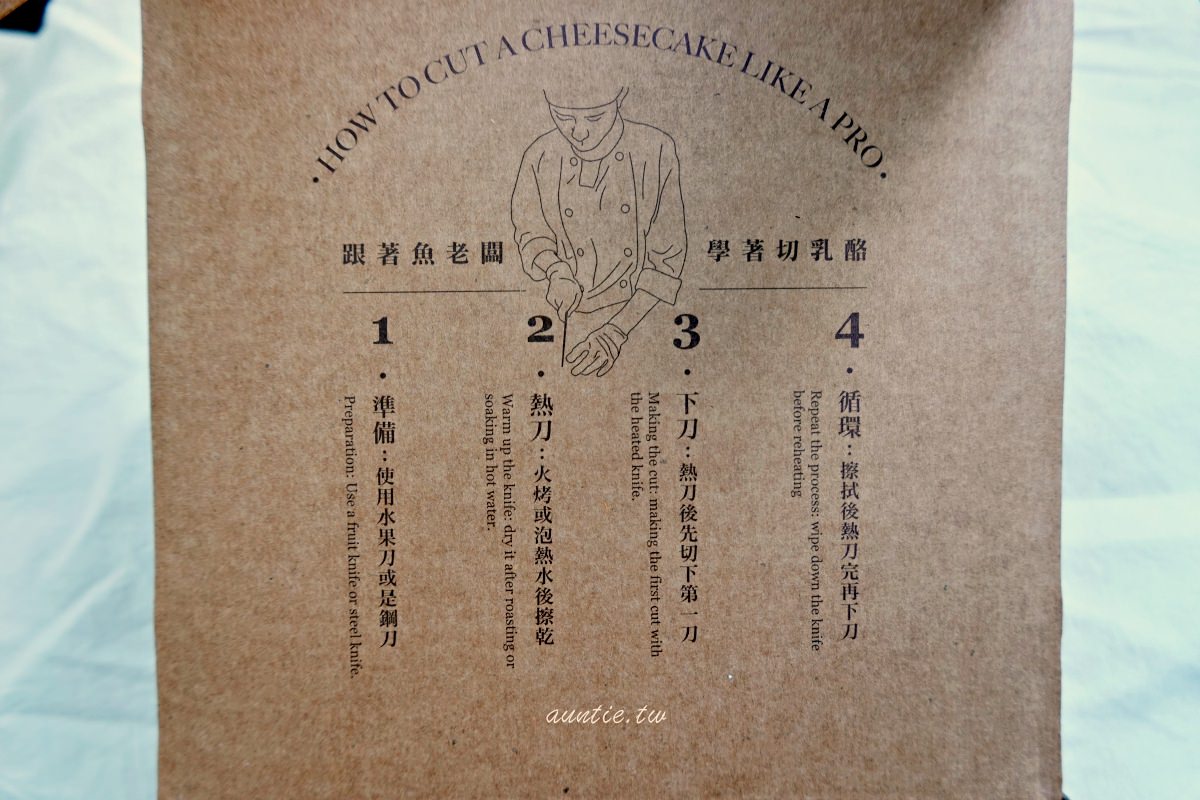 • HOW TO CUT A CHEESECAKE LIKE A PRO •
跟著魚老闆
學著切乳酪
1
•
準備：使用水果刀或是鋼刀
Preparation: Use a fruit knife or steel knife.
2
•
熱刀：火烤或泡熱水後擦乾
Warm up the knife: dry it after roasting or
soaking in hot water.
3
•
下刀：熱刀後先切下第一刀
Making the cut: making the first cut with
the heated knife.
4
•
循環：擦拭後熱刀完再下刀
Repeat the process: wipe down the knife
before reheating
auntie.tw